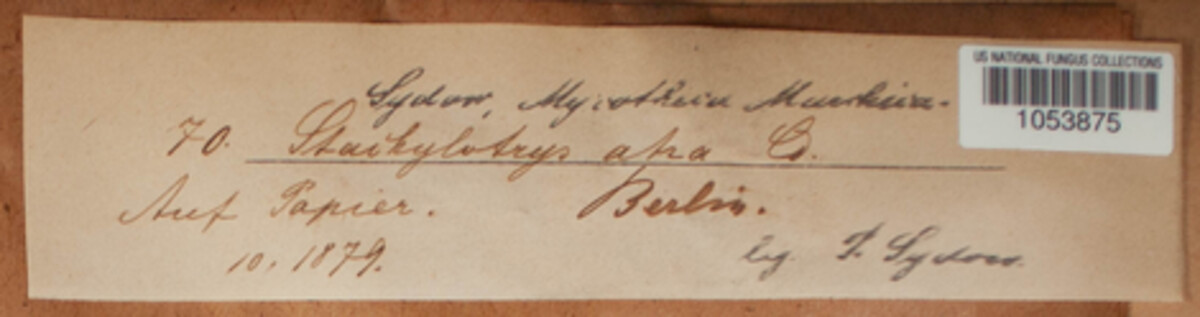 US NATIONAL FUNGUS COLLECTIONS
1053875
Sydow, Mycotheca Marchica.
70. Stachylotrys atra C.
Auf Papier. Berlin.
10. 1879.
leg. P. Sydow.